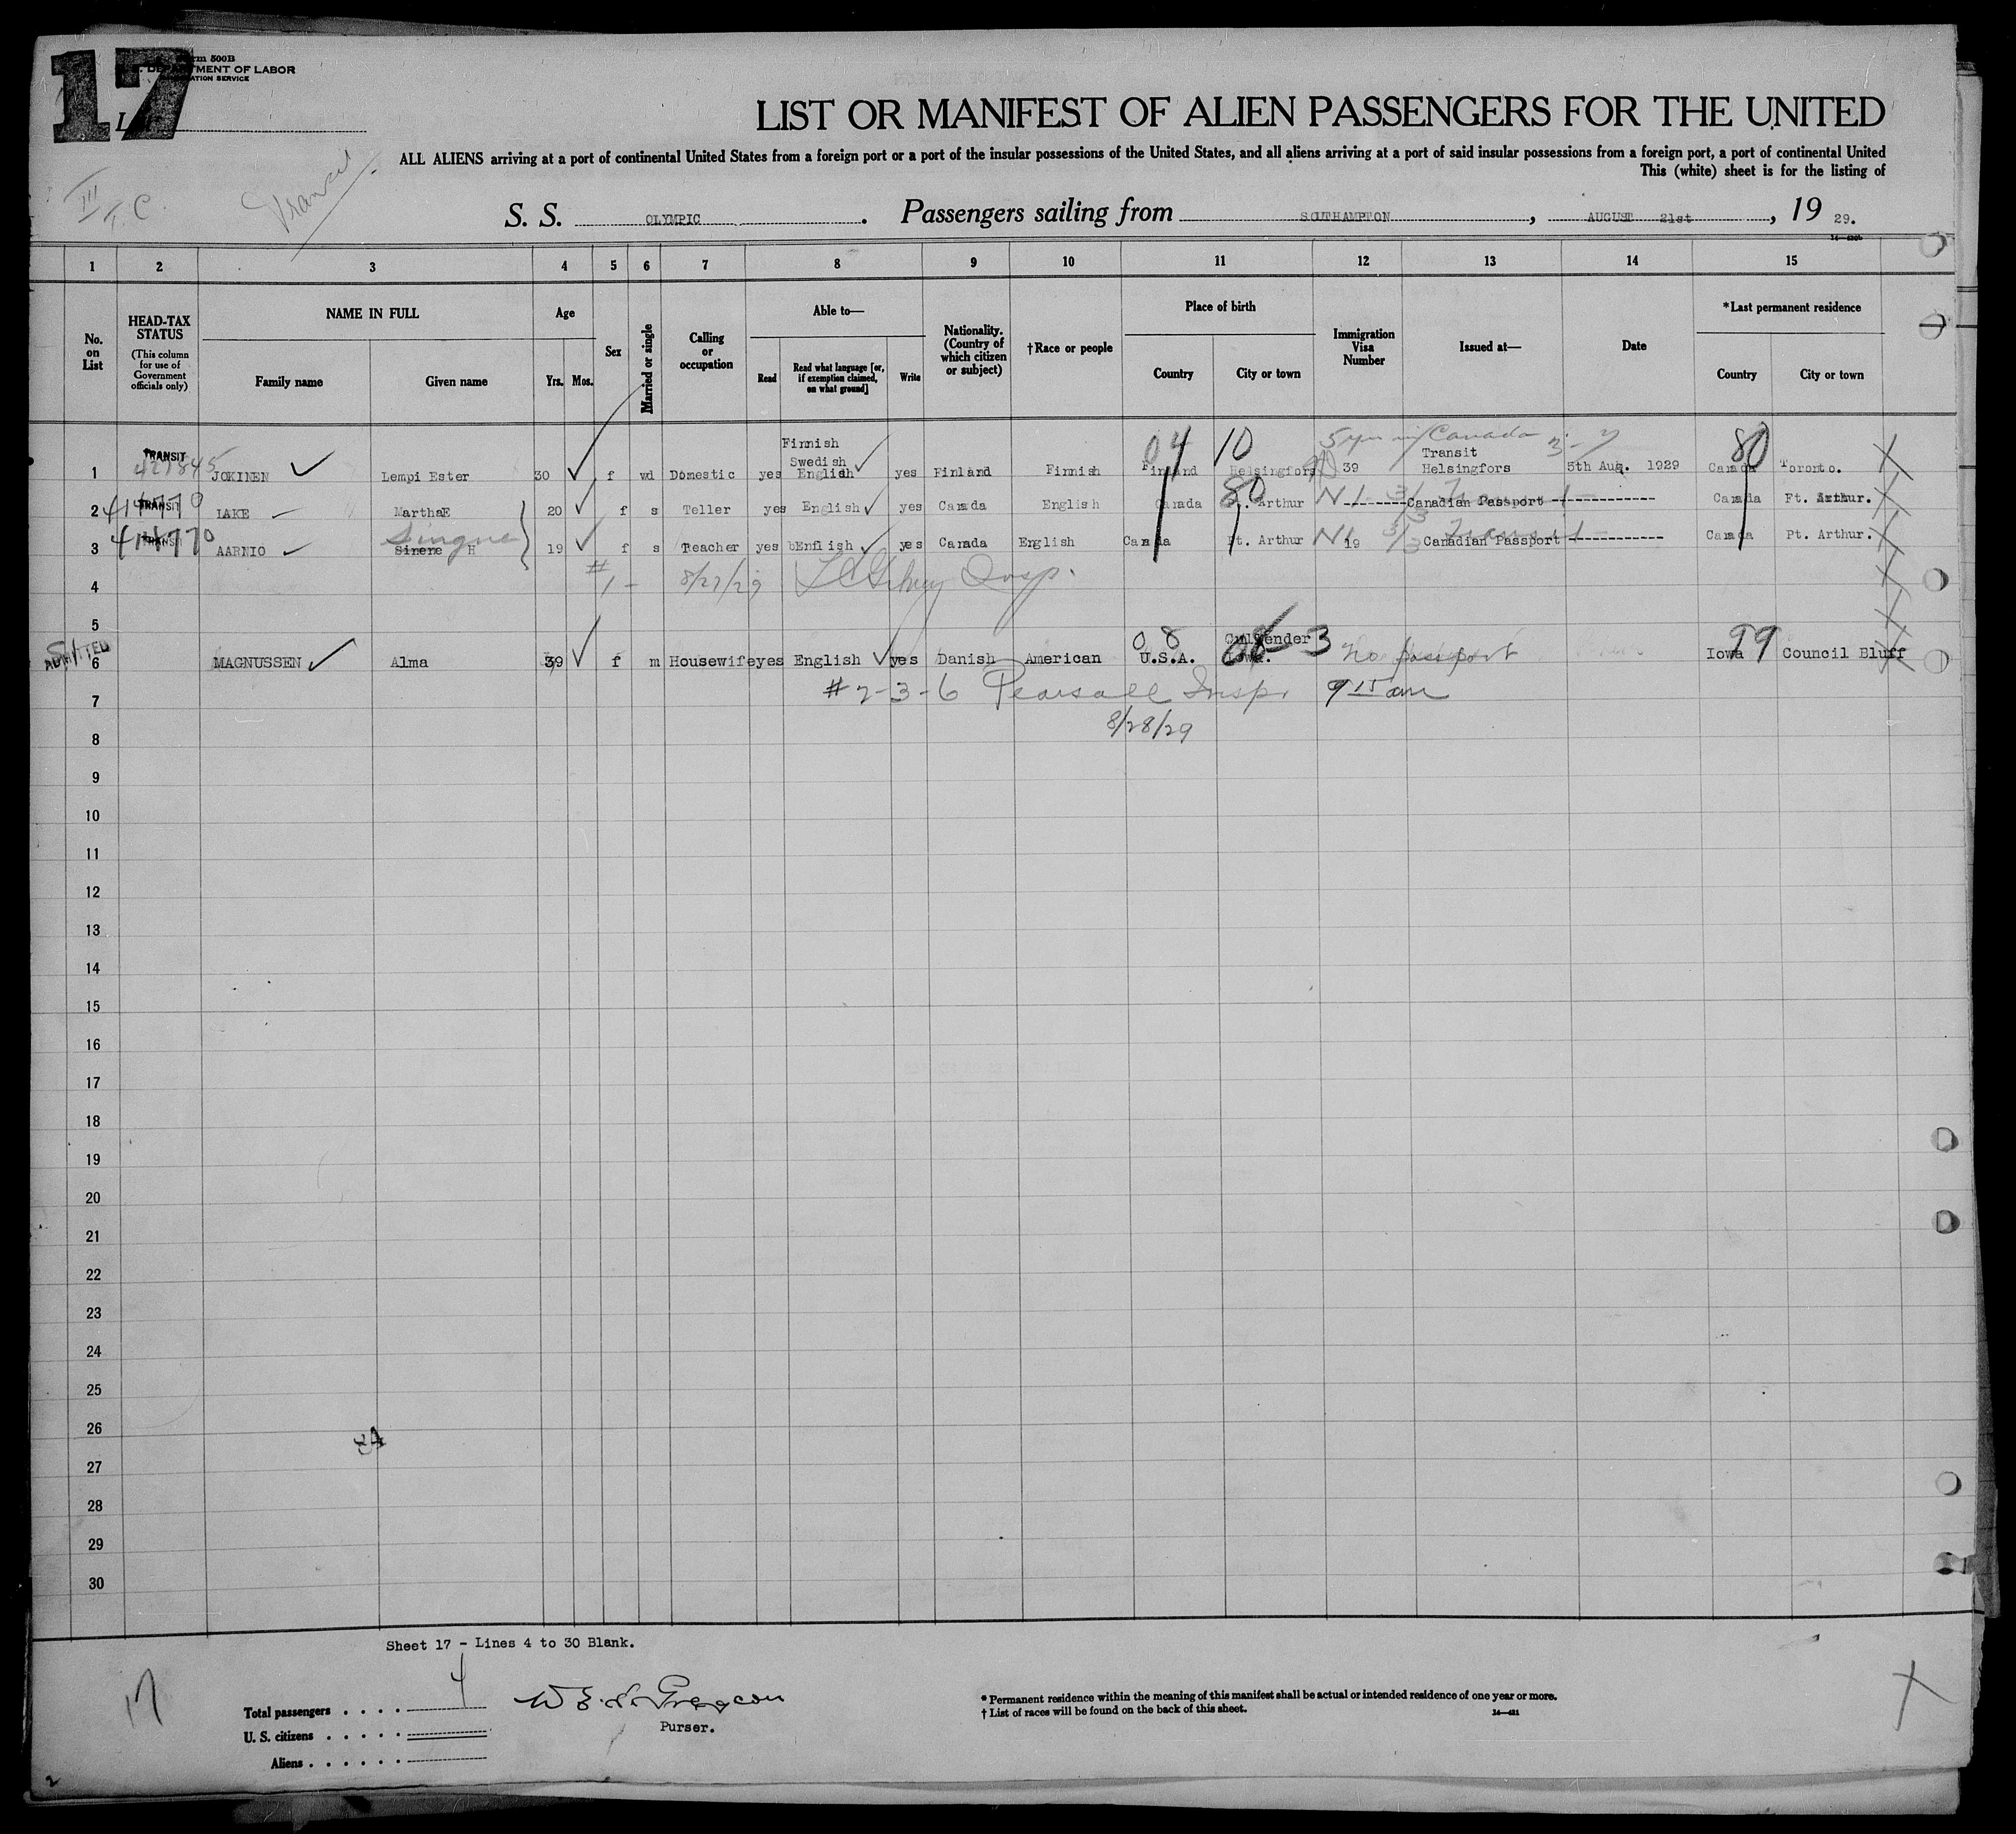 17
Form 500B
DEPARTMENT OF LABOR
IMMIGRATION SERVICE
LIST OR MANIFEST OF ALIEN PASSENGERS FOR THE UNITED
ALL ALIENS arriving at a port of continental United States from a foreign port or a port of the insular possessions of the United States, and all aliens arriving at a port of said insular possessions from a foreign port, a port of continental United
This (white) sheet is for the listing of
III T.C. Transit
S. S. OLYMPIC. Passengers sailing from SOUTHAMPTON, AUGUST 21st, 19 29.
1 2 3 4 5 6 7 8 9 10 11 12 13 14 15
No. on List
HEAD-TAX STATUS
(This column for use of Government officials only)
NAME IN FULL
Family name Given name
Age
Yrs. Mos.
Sex
Married or single
Calling or occupation
Able to—
Read Read what language [or, if exemption claimed, on what ground] Write
Nationality. (Country of which citizen or subject)
†Race or people
Place of birth
Country City or town
Immigration Visa Number
Issued at—
Date
*Last permanent residence
Country City or town
04 10 5 yrs in Canada 80
1 TRANSIT 427845 JOKINEN Lempi Ester 30 f wd Domestic yes Finnish Swedish English yes Finland Finnish Finland Helsingfors 39 Transit Helsingfors 5th Aug. 1929 Canada Toronto.
2 414770 TRANSIT LAKE Martha E 20 f s Teller yes English yes Canada English Canada 80 Arthur N 1 Canadian Passport Canada Ft. Arthur.
3 414770 TRANSIT AARNIO Singne Sirene H 19 f s Teacher yes bEnflish yes Canada English Canada Pt. Arthur N 19 Canadian Passport Canada Pt. Arthur.
4 #1 - 8/27/29 Insp.
5
6 ADMITTED MAGNUSSEN Alma 39 f m Housewife yes English yes Danish American 08 U.S.A. 3 no passport Iowa 99 Council Bluff
7 #2-3-6 Pearsall Insp. 9 15 am
8/28/29
8
9
10
11
12
13
14
15
16
17
18
19
20
21
22
23
24
25
26
27
28
29
30
Sheet 17 - Lines 4 to 30 Blank.
17
Total passengers . . . . 4
U. S. citizens . . . . .
Aliens . . . . . .
Purser.
* Permanent residence within the meaning of this manifest shall be actual or intended residence of one year or more.
† List of races will be found on the back of this sheet.
14—421
2